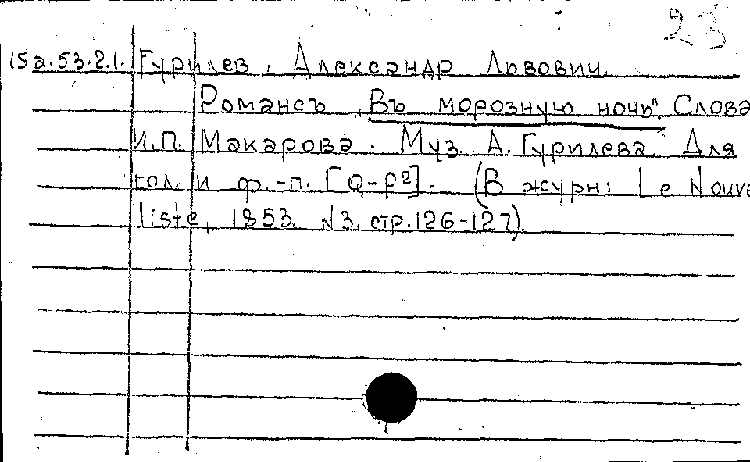 23
15а.53.2.1. Гурилев, Александр Львович.
Романсъ „Въ морозную ночь". Слова
И.П. Макарова. Муз. А. Гурилева. Для
гол. и ф.-п. [a-f²]. (В журн: Le Nouve
liste, 1853. N3, стр.126-127)